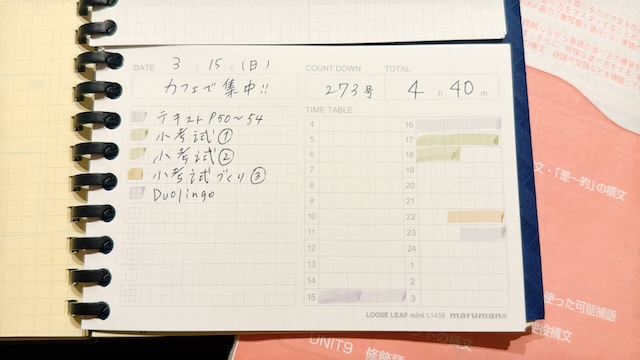 DATE 3 . 15 . (日)
カフェで集中!!
COUNT DOWN
273号
TOTAL
4 h 40 m
テキストP50〜54
小考试①
小考试②
小考试づくり③
Duolingo
TIME TABLE
4 16
5 17
6 18
7 19
8 20
9 21
10 22
11 23
12 24
13 1
14 2
15 3
LOOSE LEAF mini L1436 maruman
文・「是〜的」の構文
使った可能補語
UNIT9 修飾語